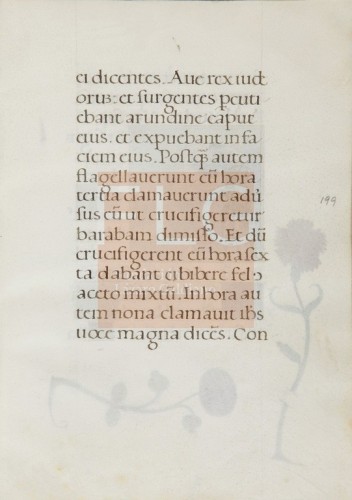 ei dicentes. Aue rex iude
orus: et surgentes peuti
ebant arundine caput
eius. et expuebant in fa
ciem eius. Postq̃ autem
flagellauerunt eũ hora
tertia clamauerunt adũ
sus eũ ut crucifigeretur
barabam dimisso. Et dũ
crucifigerent eũ hora sex
ta dabant ei bibere fel ↄ
aceto mixtũ. In hora au
tem nona clamauit ihs
uoce magna dicẽs. Con
199
TLC